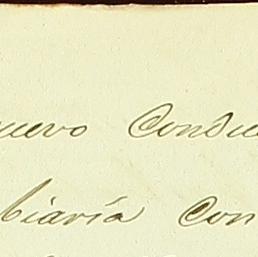 nuevo Condu
biaría con